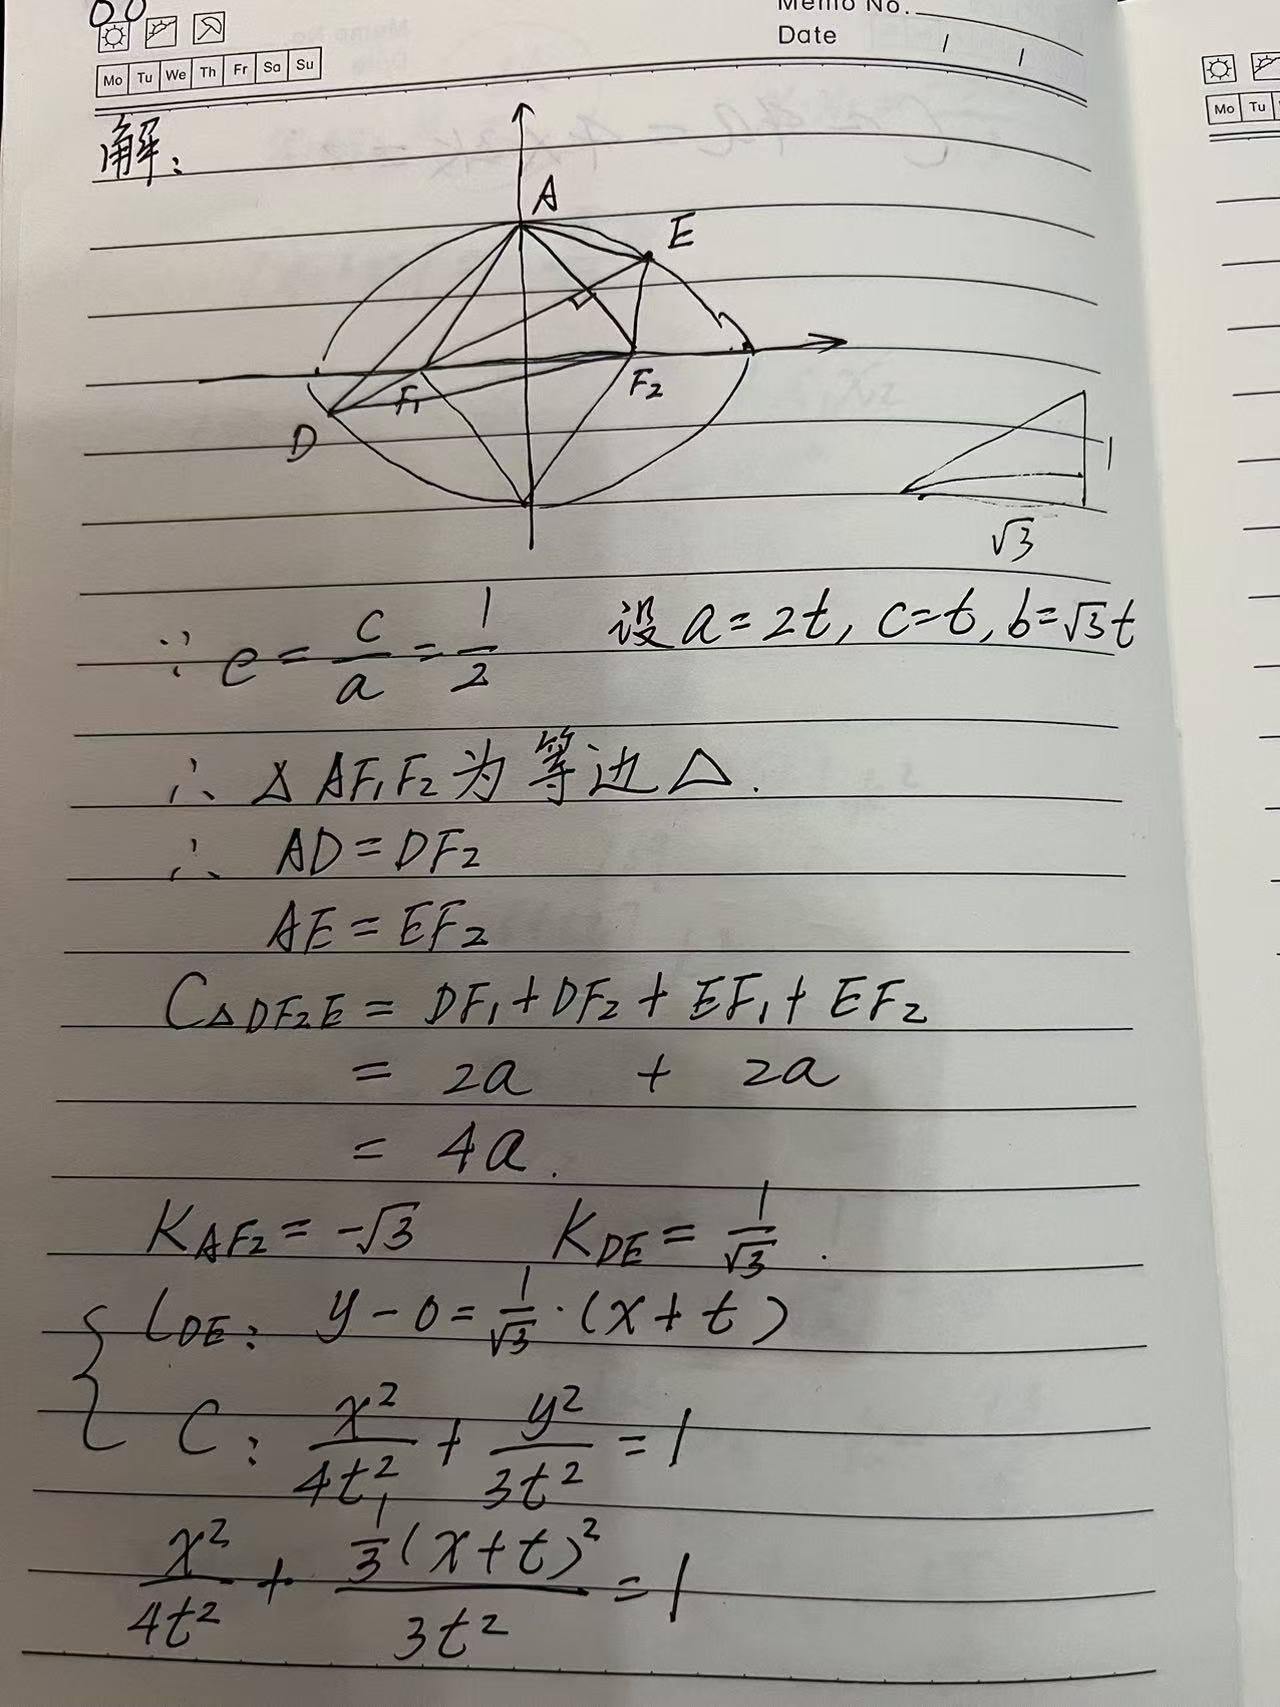 Memo No.
Date / /
Mo Tu We Th Fr Sa Su
Mo Tu
解:
A
E
F₁
F₂
D
1
√3
∵ e = c/a = 1/2 设 a = 2t, c = t, b = √3t
∴ △AF₁F₂为等边△.
∴ AD = DF₂
AE = EF₂
C△DF₂E = DF₁ + DF₂ + EF₁ + EF₂
= 2a + 2a
= 4a.
K_AF₂ = -√3 K_DE = 1/√3.
{ l_DE: y - 0 = 1/√3 · (x + t)
C: x²/4t² + y²/3t² = 1
x²/4t² + 1/3(x + t)²/3t² = 1